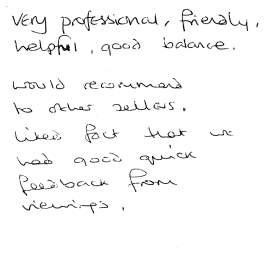 very professional, friendly,
helpful, good balance.
would recommend
to other sellers.
liked fact that we
had good quick
feedback from
viewings.